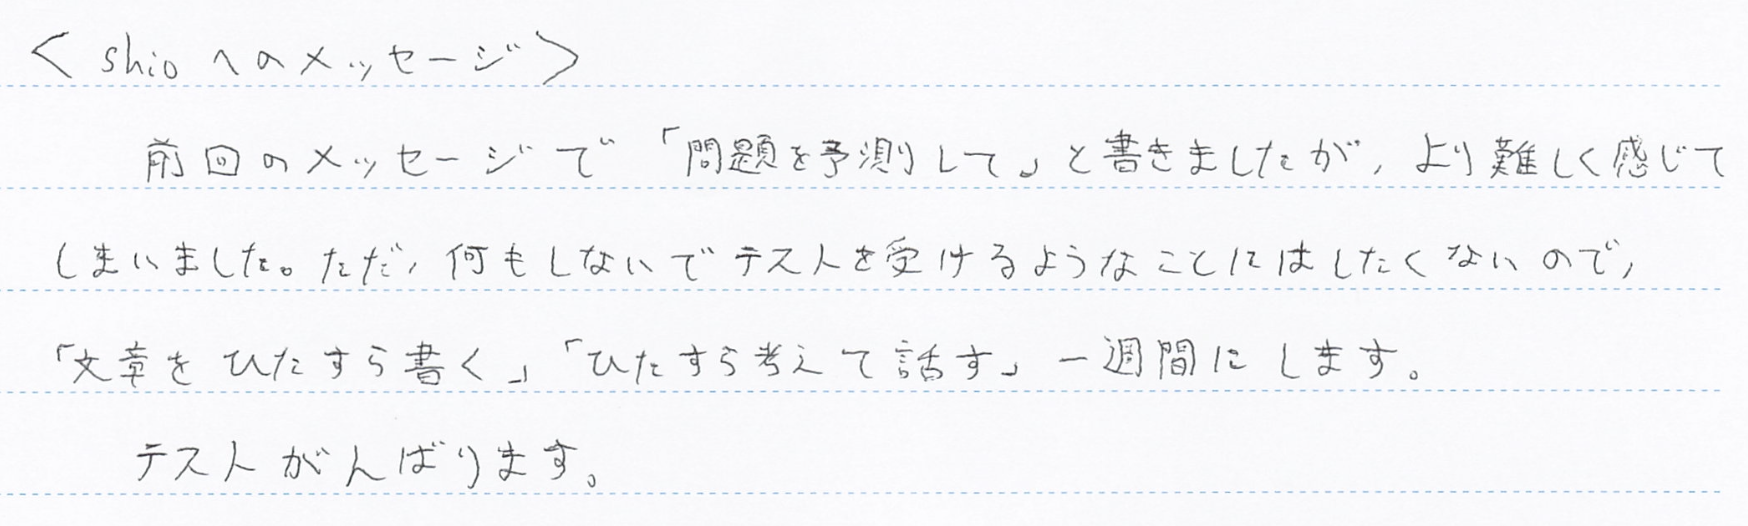 <shioへのメッセージ>
前回のメッセージで「問題を予測して」と書きましたが,より難しく感じて
しまいました。ただ,何もしないでテストを受けるようなことにはしたくないので,
「文章をひたすら書く」「ひたすら考えて話す」一週間にします。
テストがんばります。